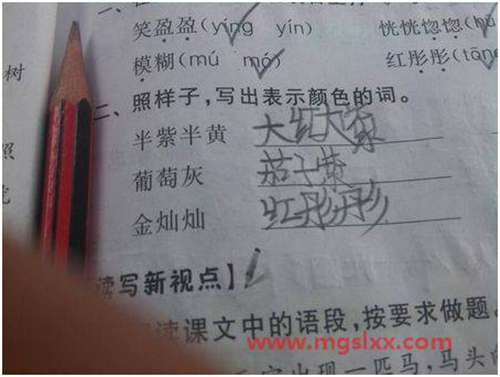 笑盈盈(yíng yín) 恍恍惚惚(hū
树 模糊(mú mó) 红彤彤(tōng
二、照样子,写出表示颜色的词。
半紫半黄 大红大紫
葡萄灰 茄子紫
照 金灿灿 红彤彤
读写新视点】
读课文中的语段,按要求做题。
www.mgslxx.com
出现一匹马,马头向